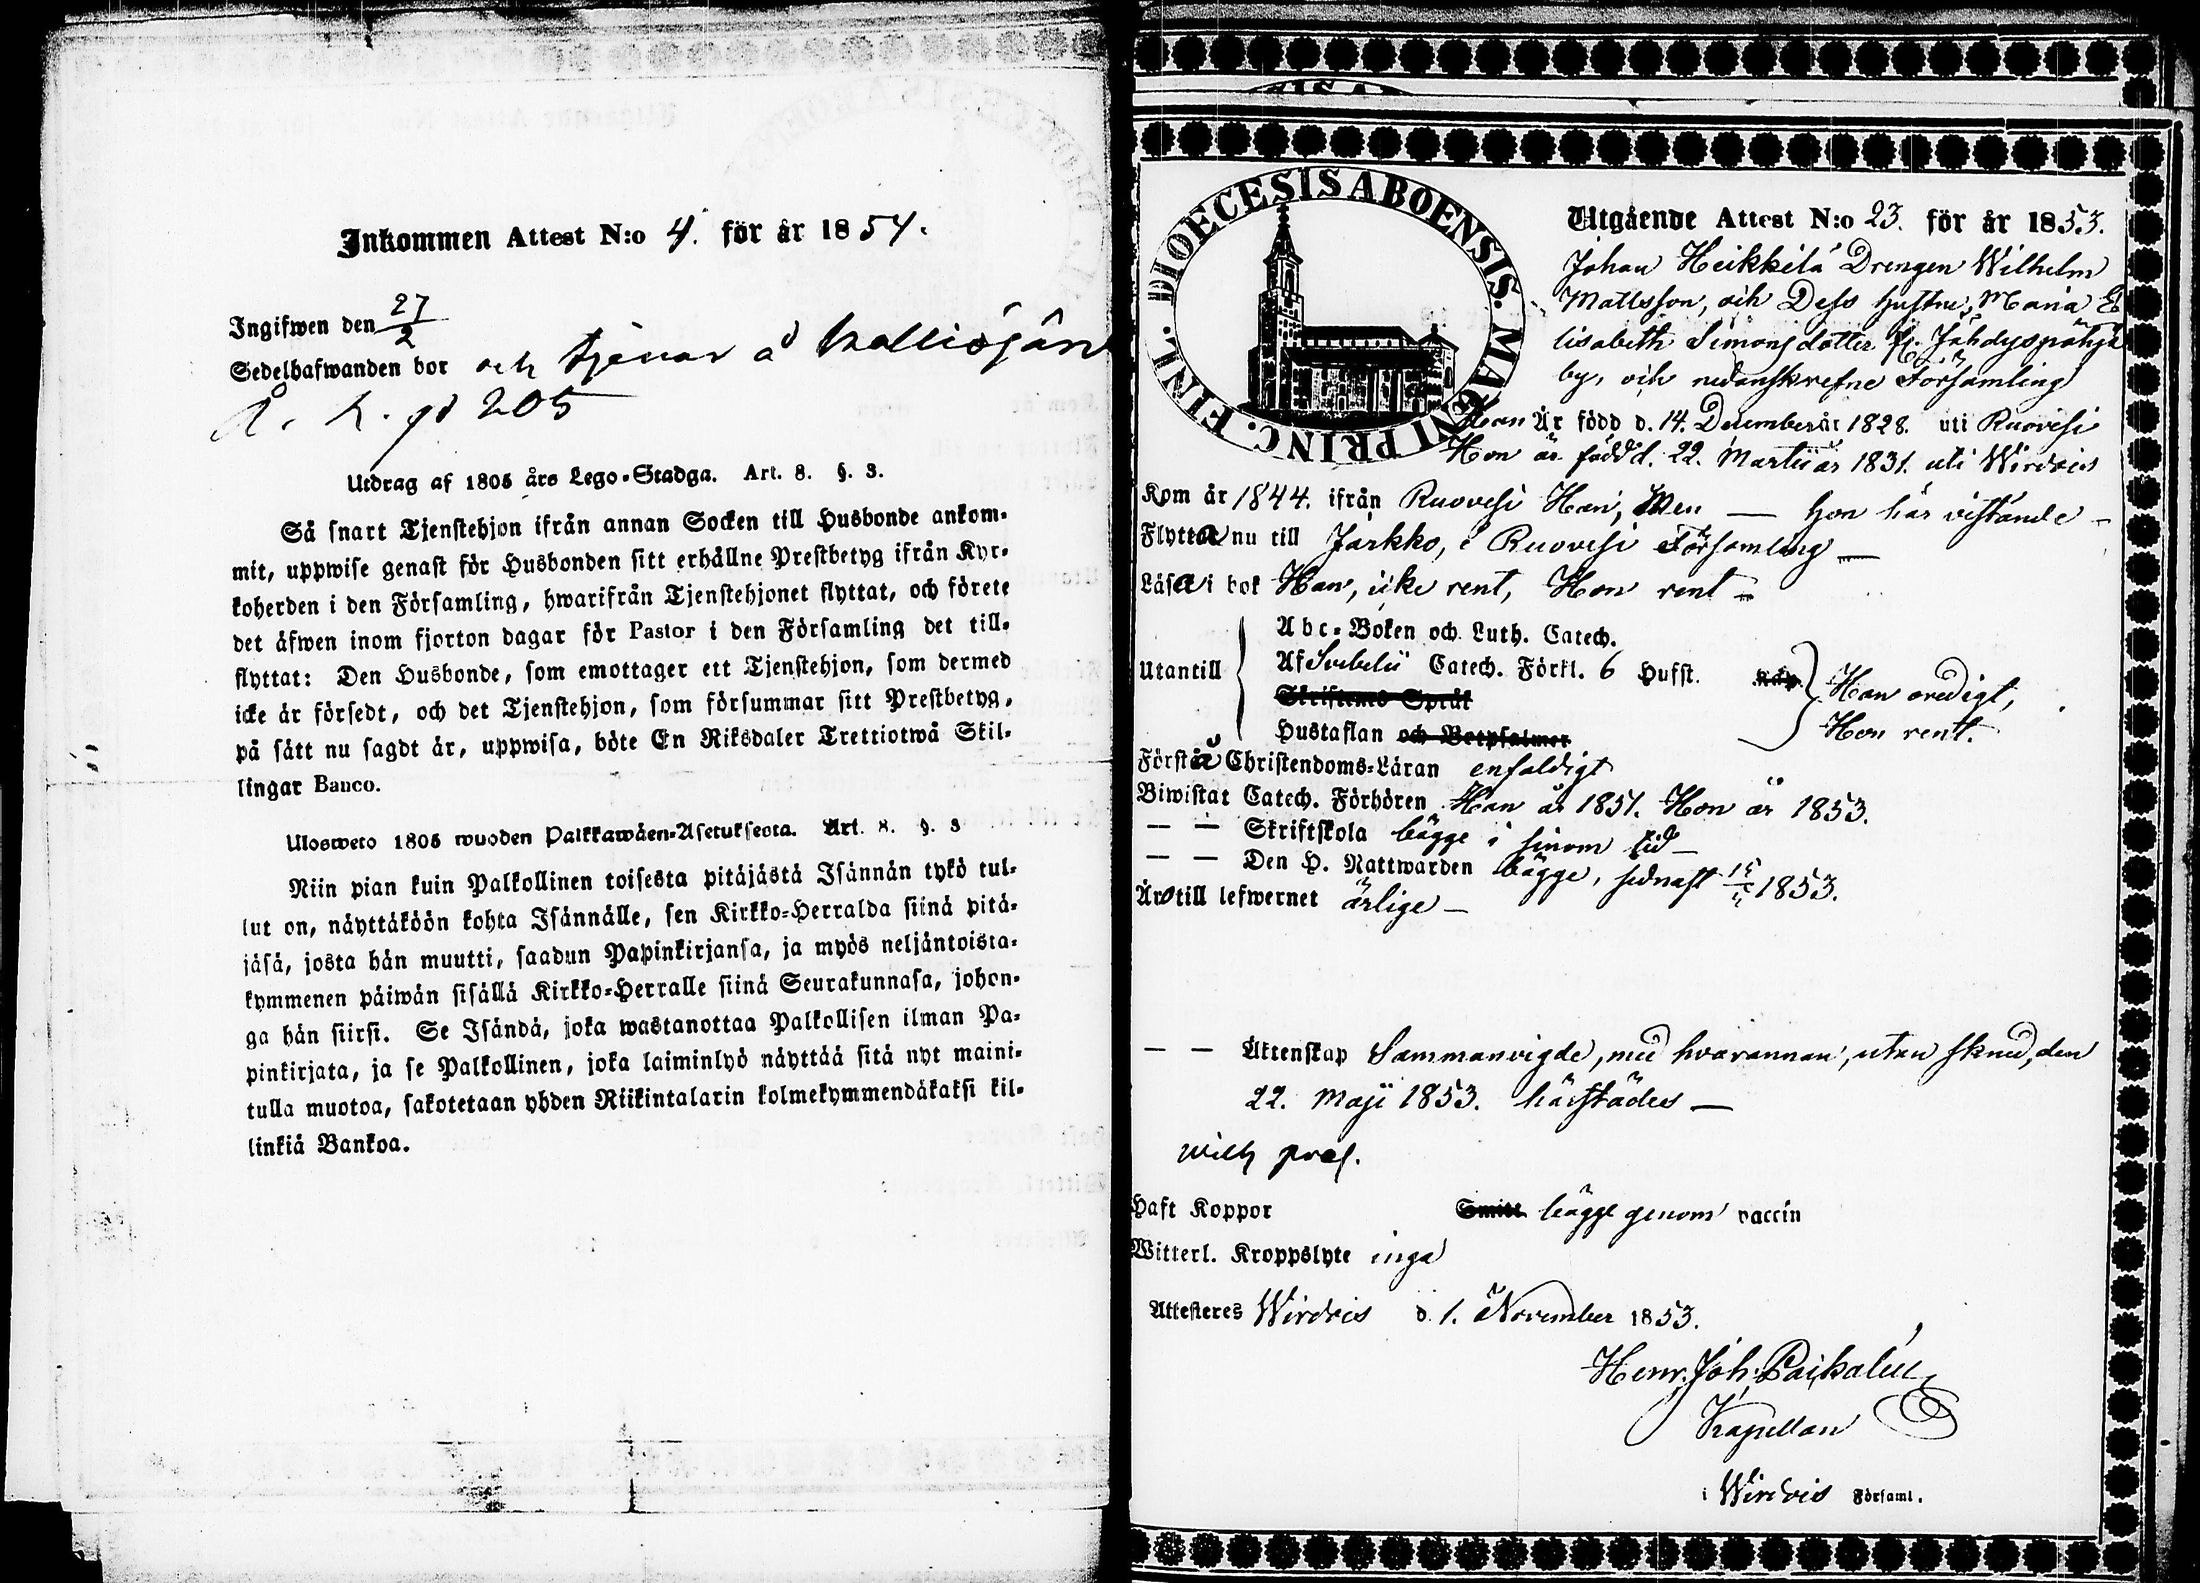 Inkommen Attest N:o 4. för år 1854.
Ingifwen den 27/2
Sedelhafwanden bor och tjenar å
pd 205
Utdrag af 1805 års Lego-Stadga. Art. 8. §. 3.
Så snart Tjenstehjon ifrån annan Socken till Husbonde ankom-
mit, uppwise genast för Husbonden sitt erhållne Prestbetyg ifrån Kyr-
koherden i den Församling, hwarifrån Tjenstehjonet flyttat, och förete
det äfwen inom fjorton dagar för Pastor i den Församling det till-
flyttat: Den Husbonde, som emottager ett Tjenstehjon, som dermed
icke är försedt, och det Tjenstehjon, som försummar sitt Prestbetyg,
på sätt nu sagdt är, uppwisa, böte En Riksdaler Trettiotwå Skil-
lingar Banco.
Ulosweto 1805 wuoden Palkkawäen-Asetuksesta. Art. 8. §. 3
Niin pian kuin Palkollinen toisesta pitäjästä Isännän tykö tul-
lut on, näyttäköön kohta Isännälle, sen Kirkko-Herralda siinä pitä-
jäsä, josta hän muutti, saadun Papinkirjansa, ja myös neljäntoista-
kymmenen päiwän sisällä Kirkko-Herralle siinä Seurakunnasa, johon-
ga hän siirsi. Se Isändä, joka wastanottaa Palkollisen ilman Pa-
pinkirjata, ja se Palkollinen, joka laiminlyö näyttää sitä nyt maini-
tulla muotoa, sakotetaan yhden Riikintalarin kolmekymmendäkaksi kil-
linkiä Bankoa.
DIOECESIS ABOENSIS. MAGNI PRINC. FINL.
Utgående Attest N:o 23. för år 1853.
Johan Heikkilä Drengen Wilhelm
Mattsson, och Dess hustru, Maria E
lisabeth Simonsdotter fr. Jähdyspohja
by, och nedanskrefne Församling
Han Är född d. 14. December år 1828. uti Ruovesi
Hon är född d. 22. Martii år 1831. uti Wirdois
Kom år 1844. ifrån Ruovesi Han, Men — Hon här vistande —
Flytta nu till Järkko, i Ruovesi Församling —
Läsa i bok Han, icke rent, Hon rent —
Abc-Boken och Luth. Catech.
Utantill Af Svebelii Catech. Förkl. 6 Hufst. Han oredigt,
Skriftens Språk
Hustaflan och Botpsalmer Hon rent.
Förstå Christendoms-Läran enfaldigt
Biwistat Catech. Förhören Han år 1851. Hon år 1853.
— — Skriftskola bägge i sinom tid —
— — Den H. Nattwarden bägge, sednast 1853.
Äro till lefwernet ärlige —
— — Äktenskap Sammanvigde, med hvarannan, utan skned, den
22. Maji 1853. härstädes —
Haft Koppor Smitt bägge genom vaccin
Witterl. Kroppslyte inga
Attesteres Wirdois d. 1. November 1853.
Henr. Joh. Paikalén
Kapellan
i Wirdois Församl.